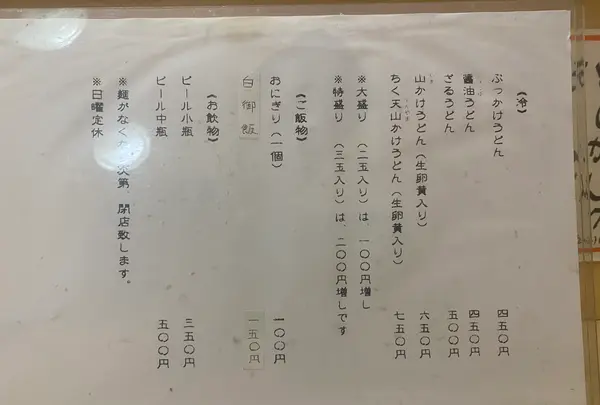 《冷》
ぶっかけうどん 四五〇円
醤油うどん 四五〇円
ざるうどん 五〇〇円
山かけうどん（生卵黄入り） 六五〇円
ちく天山かけうどん（生卵黄入り） 七五〇円
※大盛り （二玉入り）は、一〇〇円増し
※特盛り （三玉入り）は、二〇〇円増しです
《ご飯物》
おにぎり（一個） 一〇〇円
白御飯 一五〇円
《お飲物》
ビール小瓶 三五〇円
ビール中瓶 五〇〇円
※麺がなくな次第、閉店致します。
※日曜定休